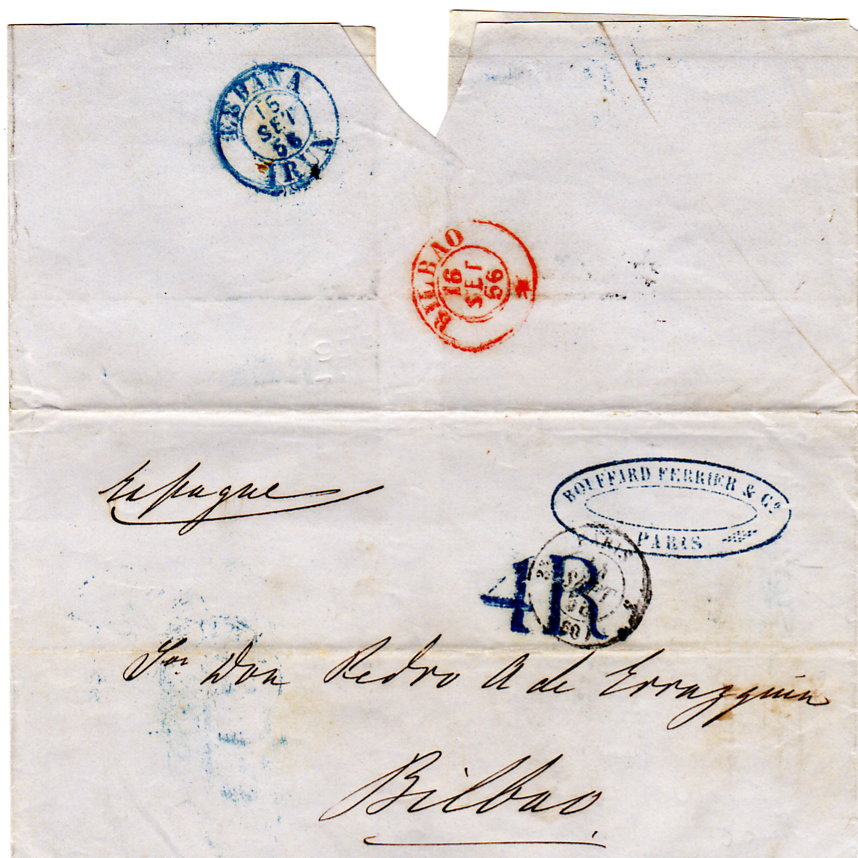 15
SET
56
IRUN
BILBAO
16
SET
56
Espagne
BOIFFARD FERRIER & Cº
PARIS
PARIS
SEPT
4R
60
Sor Don Pedro A de Errazquin
Bilbao